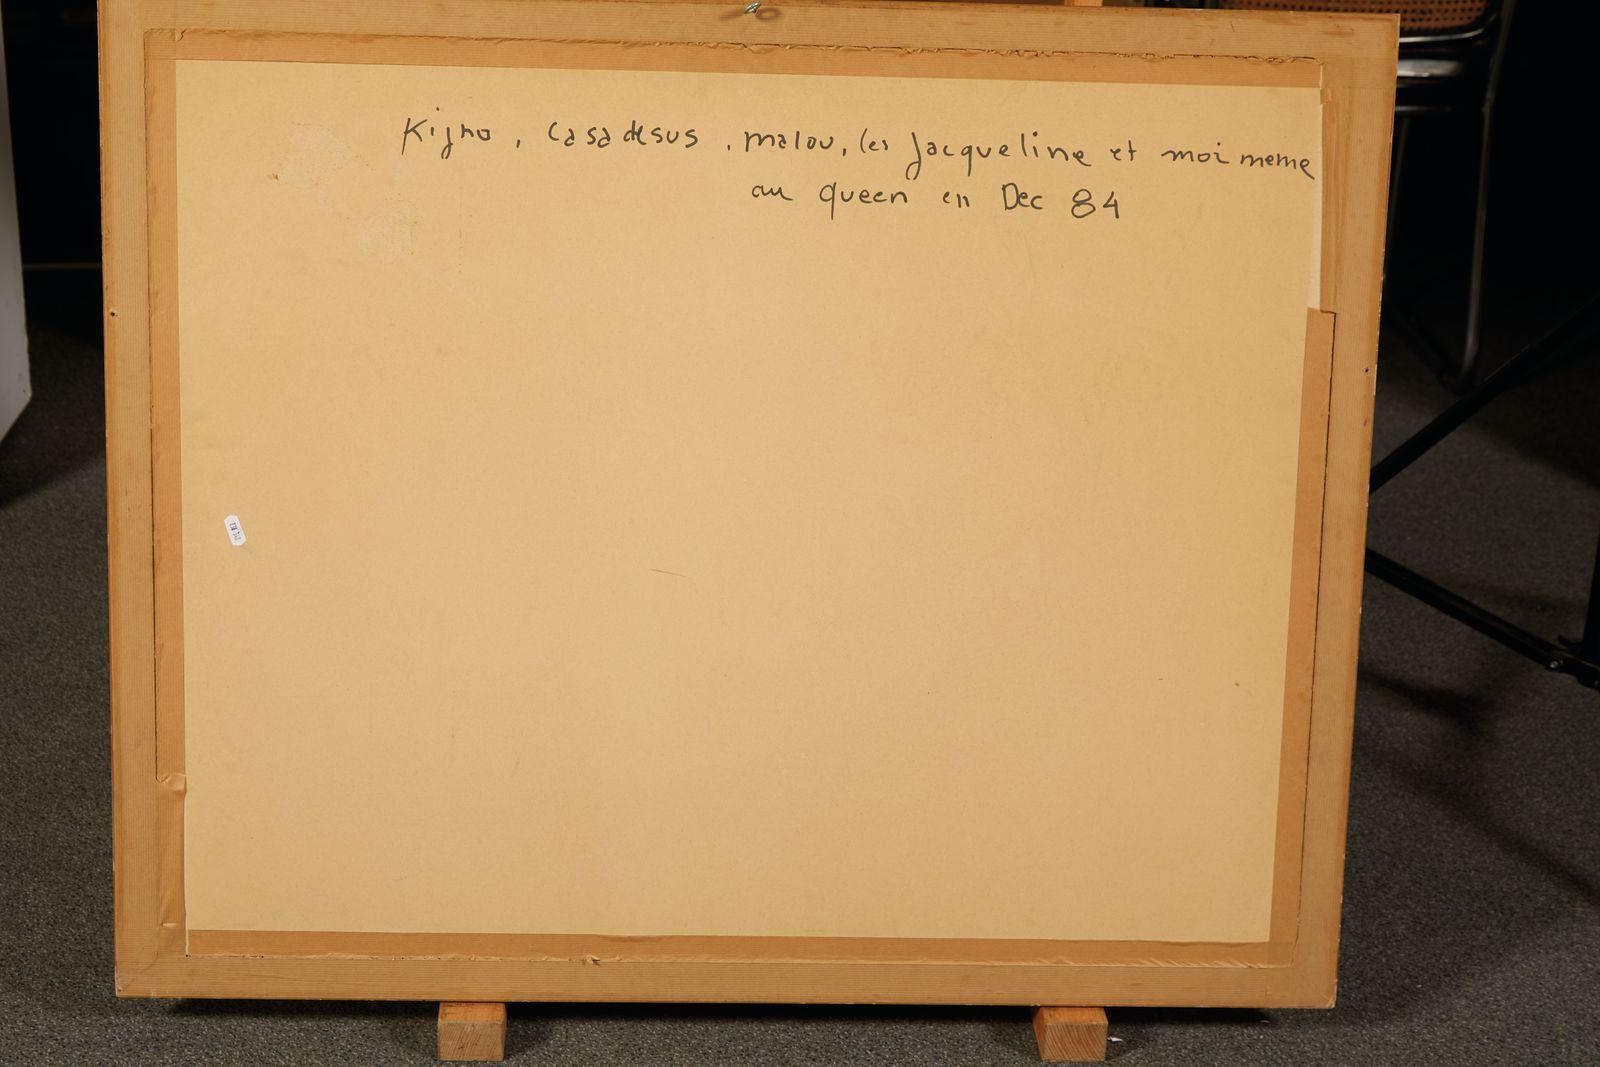 Kijno, Casadesus, malou, les Jacqueline et moi meme
au queen en Dec 84